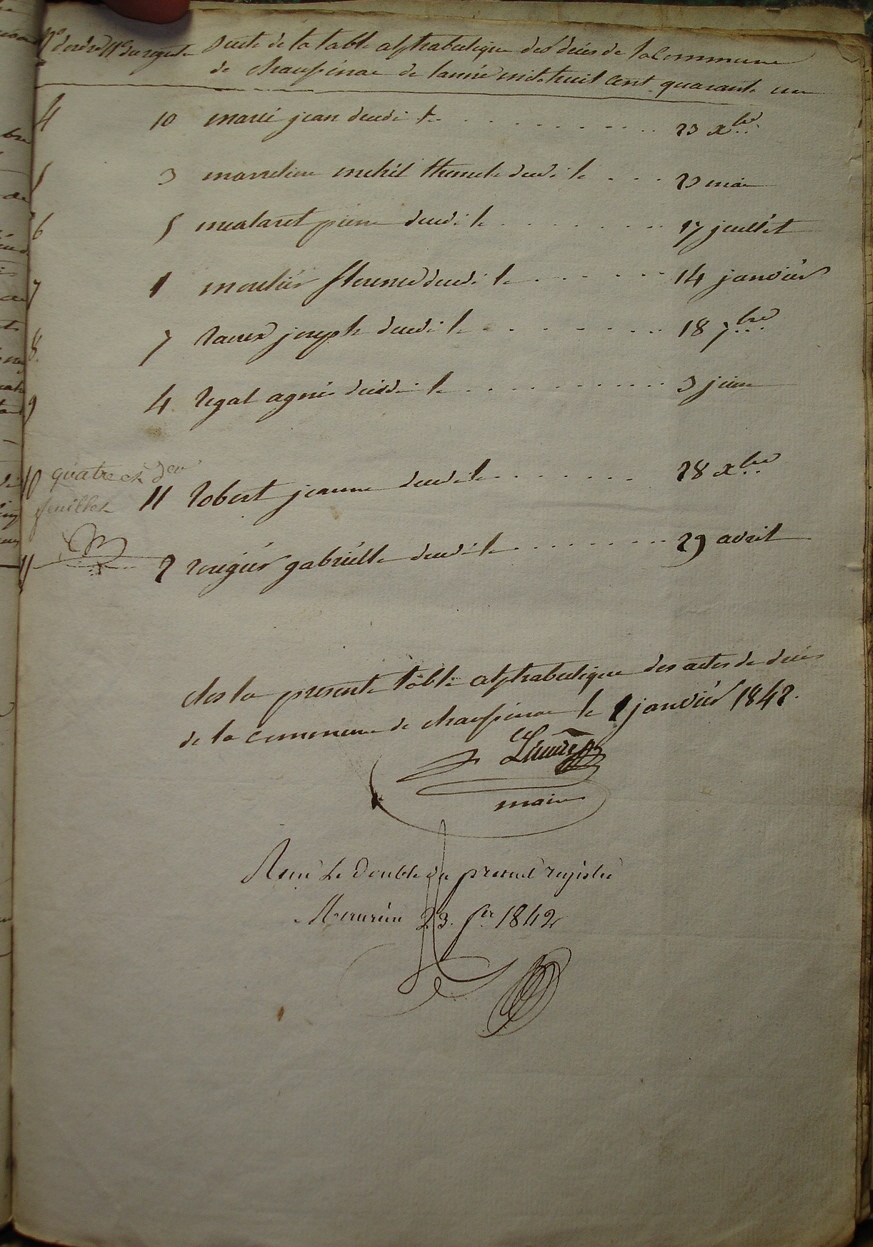 N° d'ordre N° du registre Suite de la table alphabetique des déces de la Commune
de chaussenac de lannée mil huit cent quarante un
4 10 marie jean decedé le 23 xbre
5 3 michel decedé le 20 mai
6 5 malaret pierre decedé le 17 juillet
7 1 moulier decedé le 14 janvier
8 7 joseph decedé le 18 7bre
9 4 regal agnés decedé le 3 juin
10 11 robert jeanne decedé le 28 xbre
quatre et
feuillet
11 2 rougier gabrielle decedé le 29 avril
clos la presente table alphabetique des actes de déces
de la commune de chaussenac le 2 janvier 1842.
maire
Reçu Le double du present registre
Mauriac 23 fer 1842